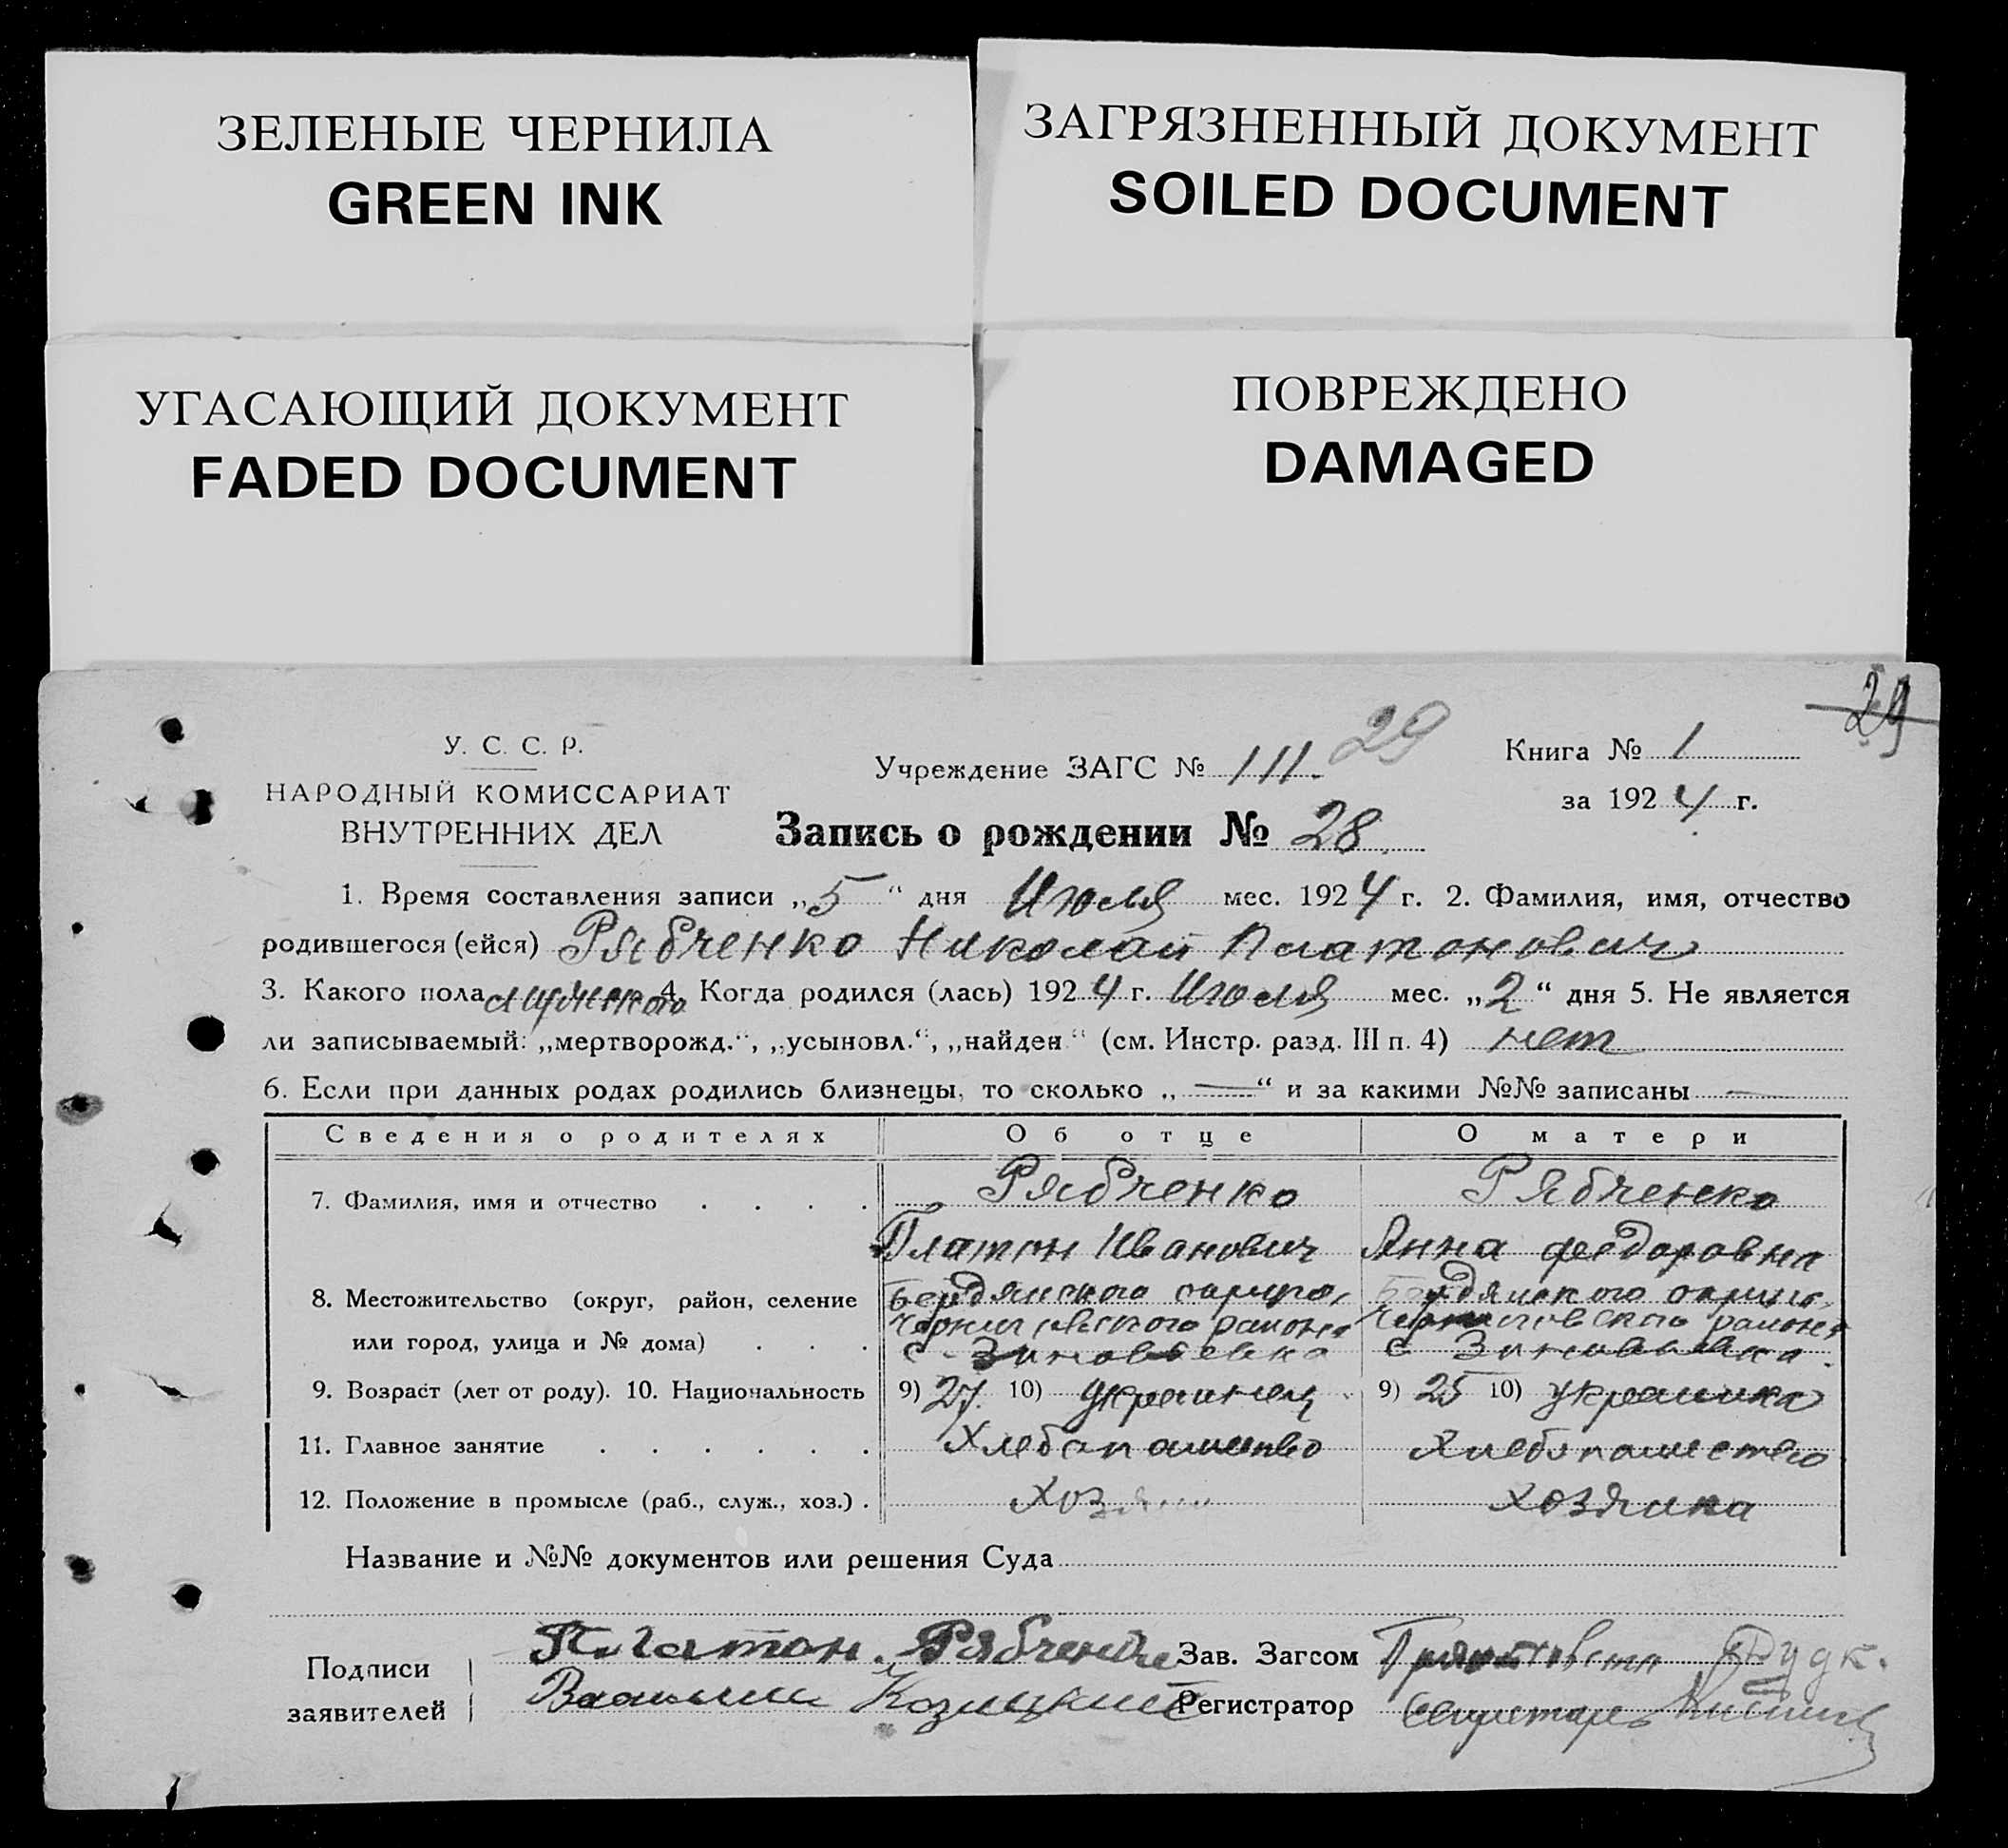 ЗЕЛЕНЫЕ ЧЕРНИЛА
GREEN INK
ЗАГРЯЗНЕННЫЙ ДОКУМЕНТ
SOILED DOCUMENT
УГАСАЮЩИЙ ДОКУМЕНТ
FADED DOCUMENT
ПОВРЕЖДЕНО
DAMAGED
29
У. С. С. Р.
НАРОДНЫЙ КОМИССАРИАТ
ВНУТРЕННИХ ДЕЛ
Учреждение ЗАГС № 111. 29
Книга № 1
за 1924 г.
Запись о рождении № 28.
1. Время составления записи „5“ дня Июля мес. 1924 г. 2. Фамилия, имя, отчество
родившегося (ейся) Рябченко Николай Платонович
3. Какого пола мужского 4. Когда родился (лась) 1924 г. Июля мес. „2“ дня 5. Не является
ли записываемый: „мертворожд.“, „усыновл.“, „найден“ (см. Инстр. разд. III п. 4) нет
6. Если при данных родах родились близнецы, то сколько „—“ и за какими №№ записаны —
Сведения о родителях Об отце О матери
7. Фамилия, имя и отчество . . . . Рябченко Рябченко
Платон Иванович Анна Федоровна
8. Местожительство (округ, район, селение Бердянского округа, Бердянского округа,
Черниговского района Черниговского района
или город, улица и № дома) . . . с. Зиновьевка с Зиновьевка.
9. Возраст (лет от роду). 10. Национальность 9) 27. 10) украинец 9) 25 10) украинка
11. Главное занятие . . . . . . Хлебопашество Хлебопашество
12. Положение в промысле (раб., служ., хоз.) . Хозяин хозяйка
Название и №№ документов или решения Суда
Подписи
заявителей
Платон. Рябченко
Козицкий
Зав. Загсом
Регистратор Секретарь